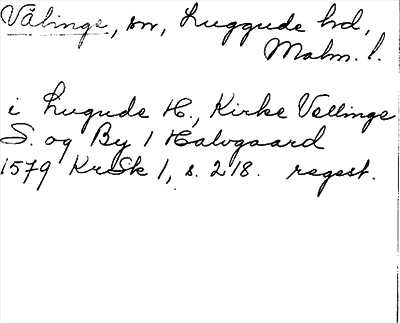 Välinge, sn, Luggude hd,
Malm. l.
i Lugude H., Kirke Vellinge
S. og By 1 Halvgaard
1579 KrSk 1, s. 218. regest.